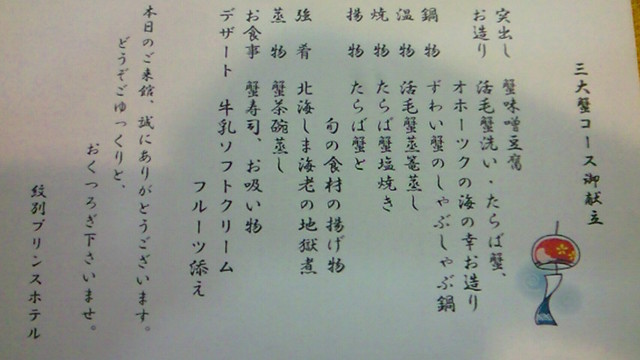 三大蟹コース御献立
突出し 蟹味噌豆腐
お造り 活毛蟹洗い・たらば蟹、
オホーツクの海の幸お造り
鍋物 ずわい蟹のしゃぶしゃぶ鍋
温物 活毛蟹蒸篭蒸し
焼物 たらば蟹塩焼き
揚物 たらば蟹と
旬の食材の揚げ物
強肴 北海しま海老の地獄煮
蒸物 蟹茶碗蒸し
お食事 蟹寿司、お吸い物
デザート 牛乳ソフトクリーム
フルーツ添え
本日のご来館、誠にありがとうございます。
どうぞごゆっくりと、
おくつろぎ下さいませ。
紋別プリンスホテル